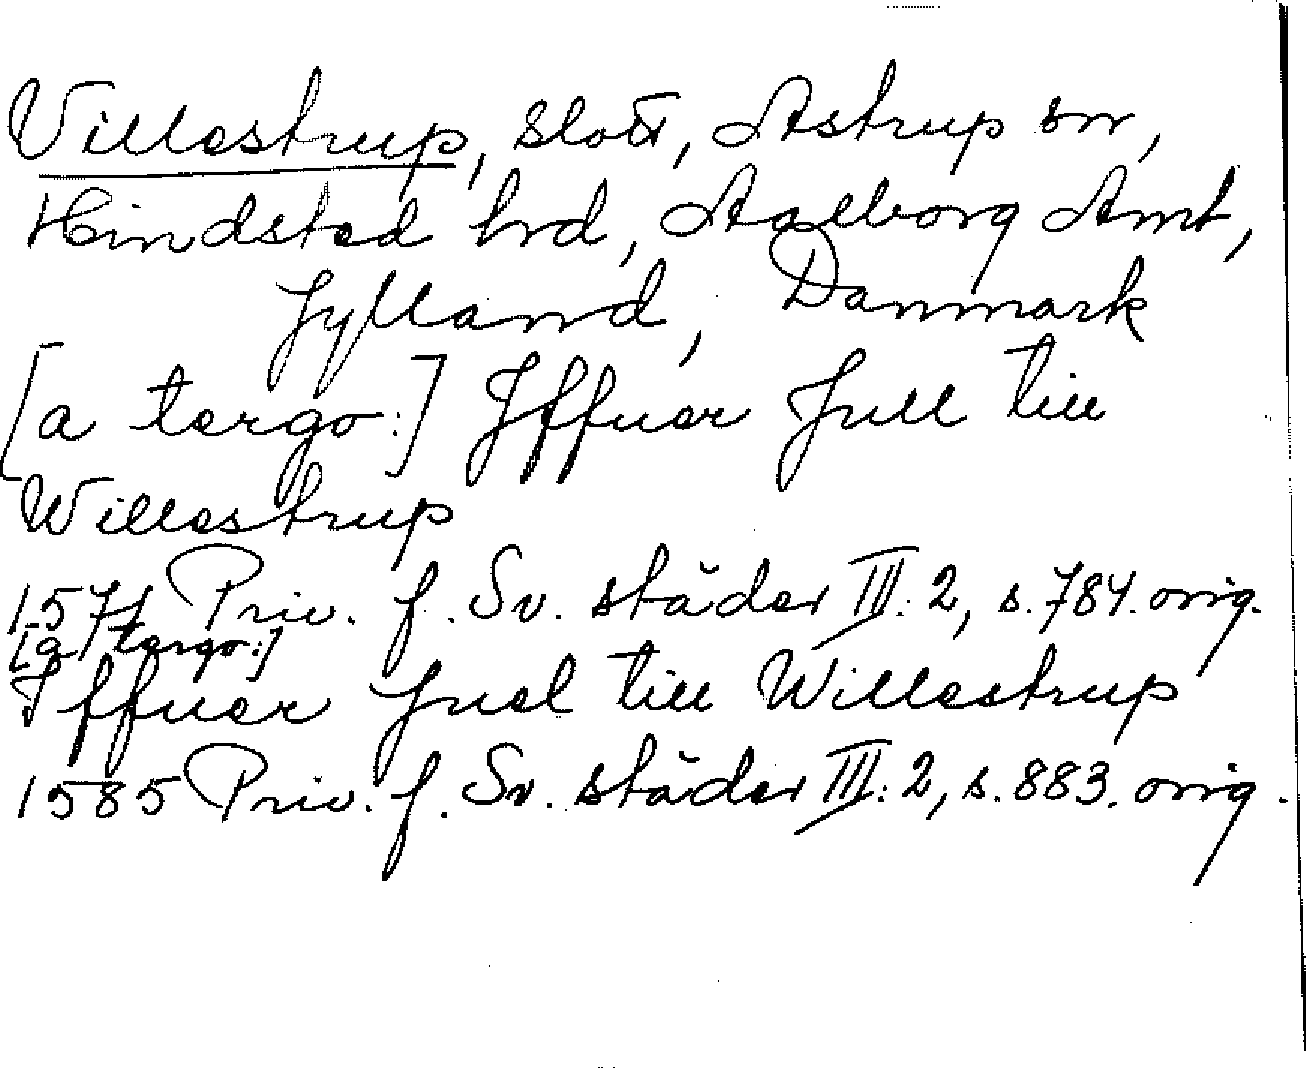 Villestrup, slott, Astrup sn,
Hindsted hrd, Aalborg Amt,
Jylland, Danmark
[a tergo:] Iffuer Jull till
Willestrup
1571 Priv. f. Sv. städer III:2, s. 784. orig.
[a tergo:]
Iffuer Juel till Willestrup
1585 Priv. f. Sv. städer III:2, s. 883. orig.